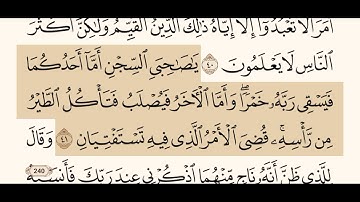 أَمَرَ أَلَّا تَعْبُدُوٓا۟ إِلَّآ إِيَّاهُ ذَٰلِكَ ٱلدِّينُ ٱلْقَيِّمُ وَلَٰكِنَّ أَكْثَرَ
ٱلنَّاسِ لَا يَعْلَمُونَ ٤٠ يَٰصَٰحِبَىِ ٱلسِّجْنِ أَمَّآ أَحَدُكُمَا
فَيَسْقِى رَبَّهُۥ خَمْرًا ۖ وَأَمَّا ٱلْءَاخَرُ فَيُصْلَبُ فَتَأْكُلُ ٱلطَّيْرُ
مِن رَّأْسِهِۦ ۚ قُضِىَ ٱلْأَمْرُ ٱلَّذِى فِيهِ تَسْتَفْتِيَانِ ٤١ وَقَالَ
لِلَّذِى ظَنَّ أَنَّهُۥ نَاجٍ مِّنْهُمَا ٱذْكُرْنِى عِندَ رَبِّكَ فَأَنسَىٰهُ
240